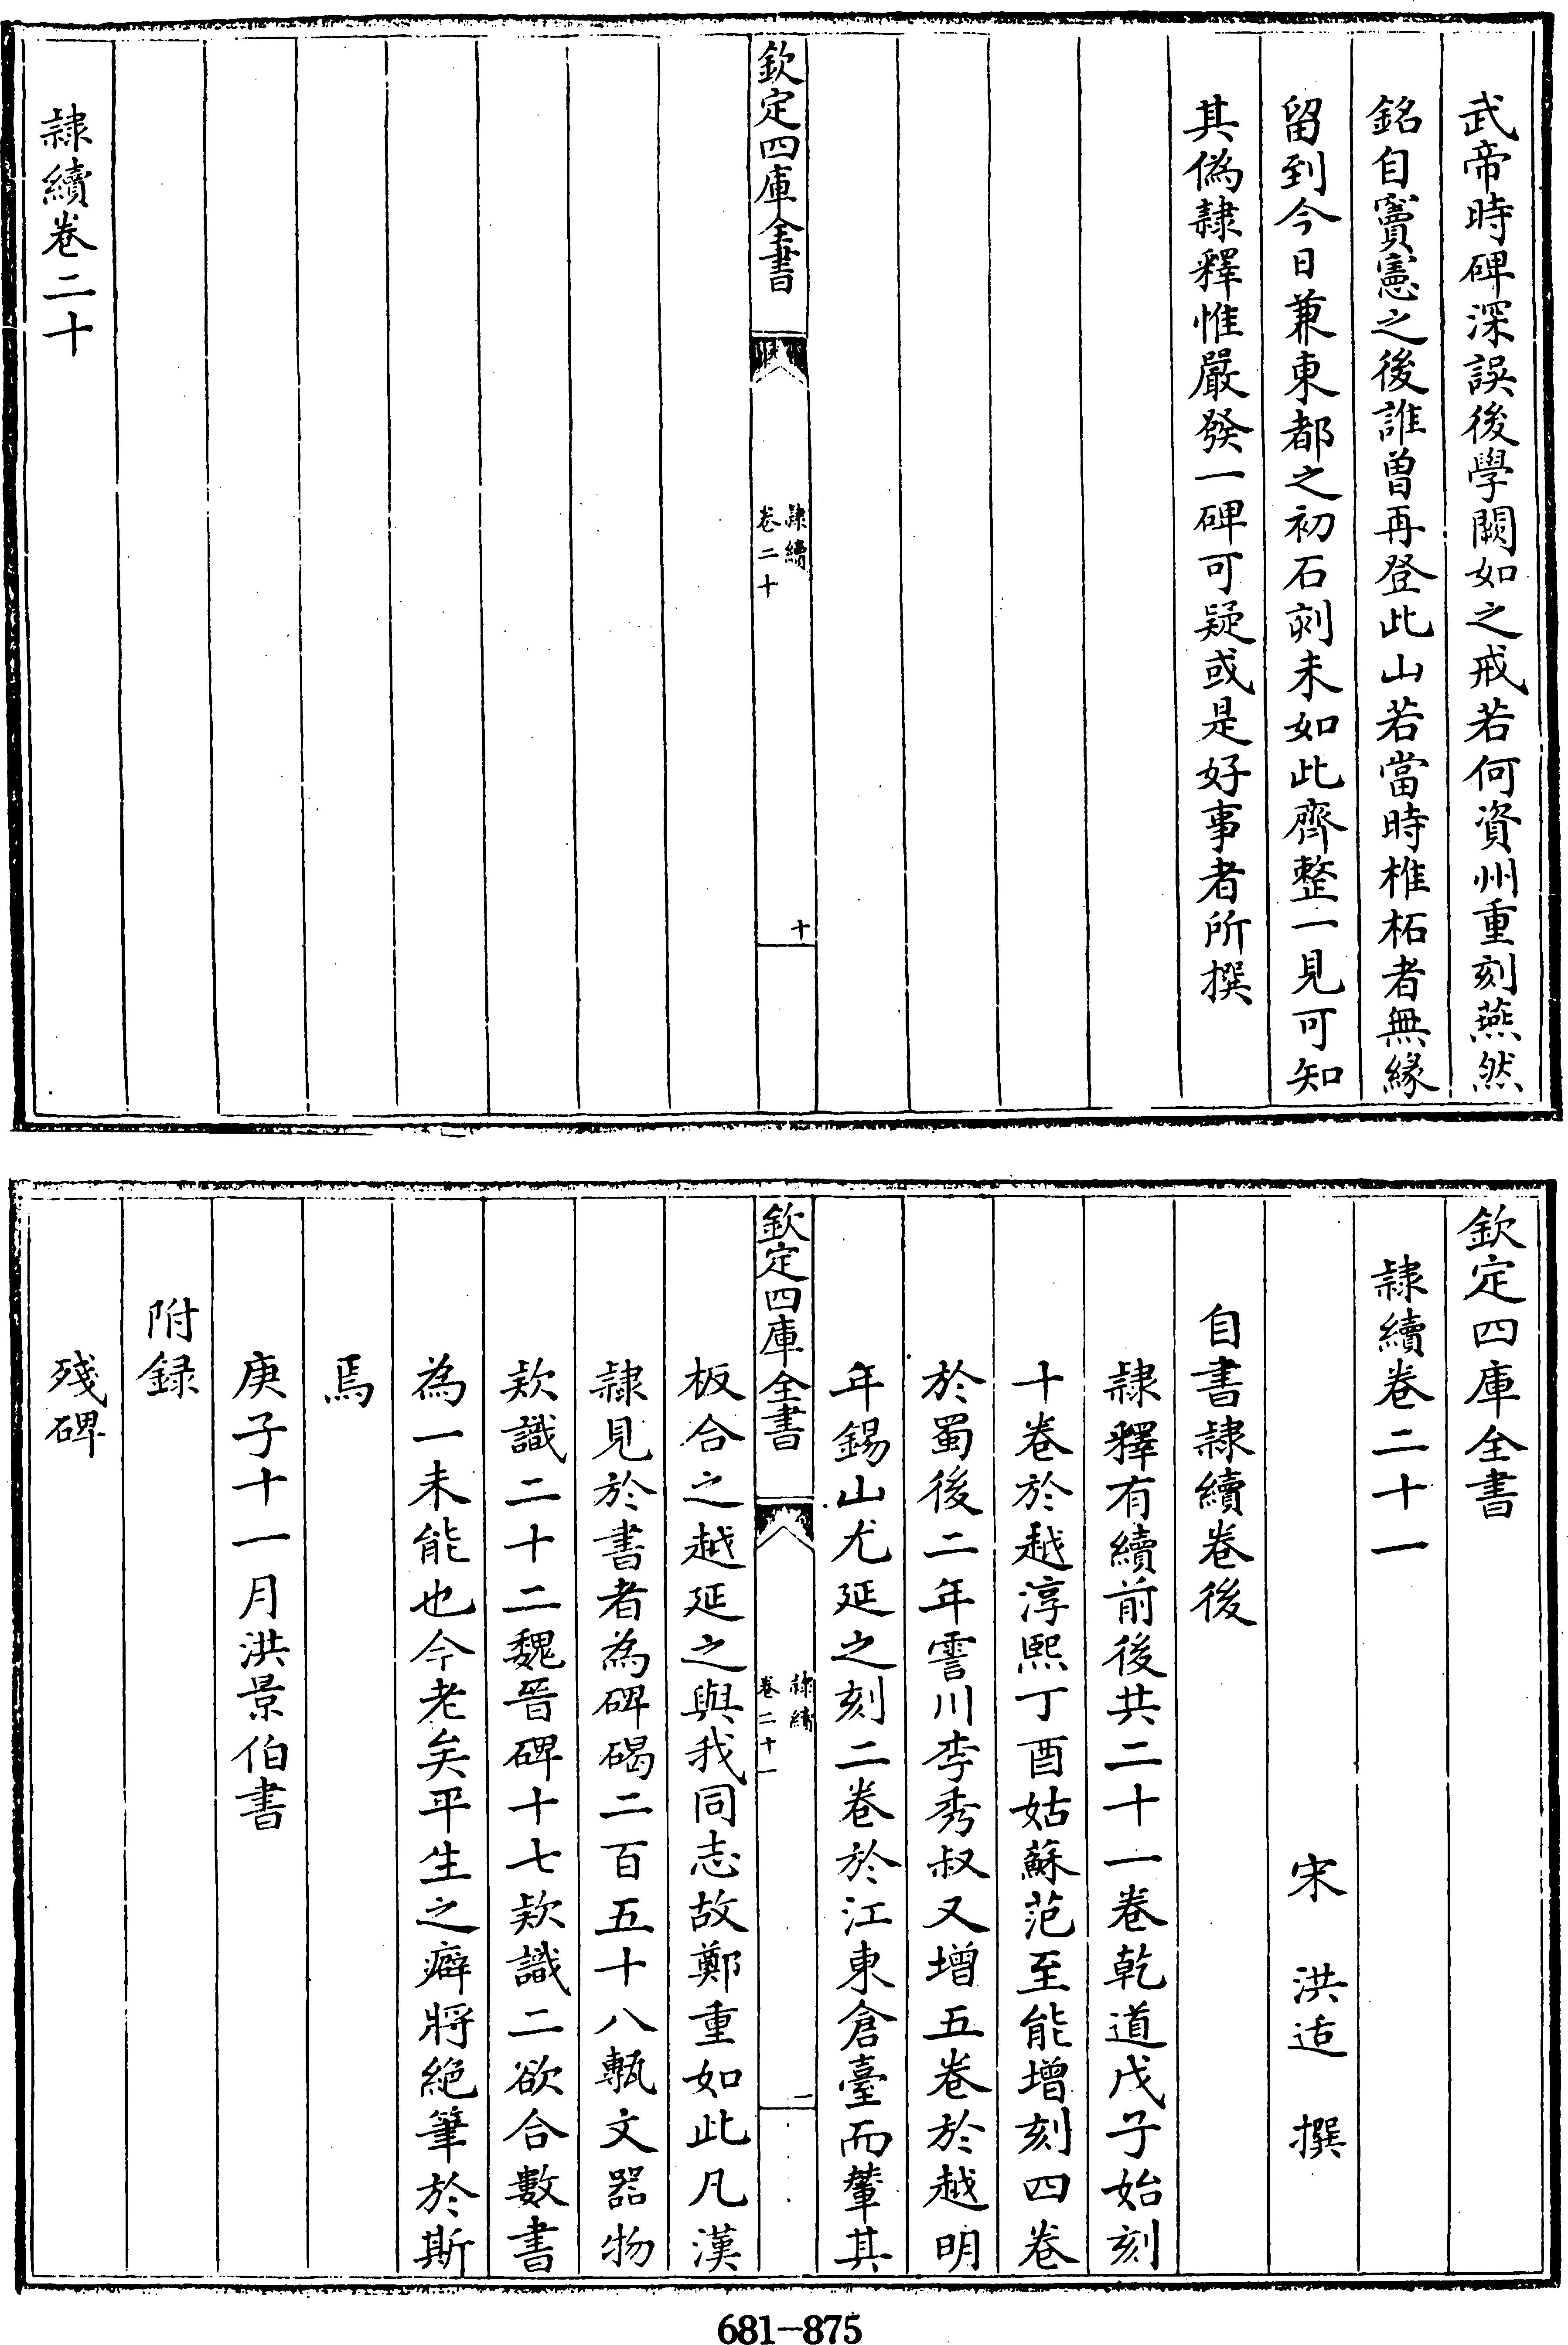 武帝時碑深誤後學闕如之戒若何資州重刻燕然
銘自竇憲之後誰曾再登此山若當時椎柘者無緣
留到今日兼東都之初石刻未如此齊整一見可知
其偽隷釋惟嚴發一碑可疑或是好事者所撰
欽定四庫全書
隷續
卷二十
十
隷續卷二十
欽定四庫全書
隷續卷二十一
宋 洪适 撰
自書隷續卷後
隷釋有續前後共二十一卷乾道戊子始刻
十卷於越淳熙丁酉姑蘇范至能增刻四卷
於蜀後二年霅川李秀叔又增五卷於越明
年錫山尤延之刻二卷於江東倉臺而輦其
欽定四庫全書
隷續
卷二十一
一
板合之越延之與我同志故鄭重如此凡漢
隷見於書者為碑碣二百五十八甎文器物
欵識二十二魏晉碑十七欵識二欲合數書
為一未能也今老矣平生之癖將絕筆於斯
焉
庚子十一月洪景伯書
附録
殘碑
681-875